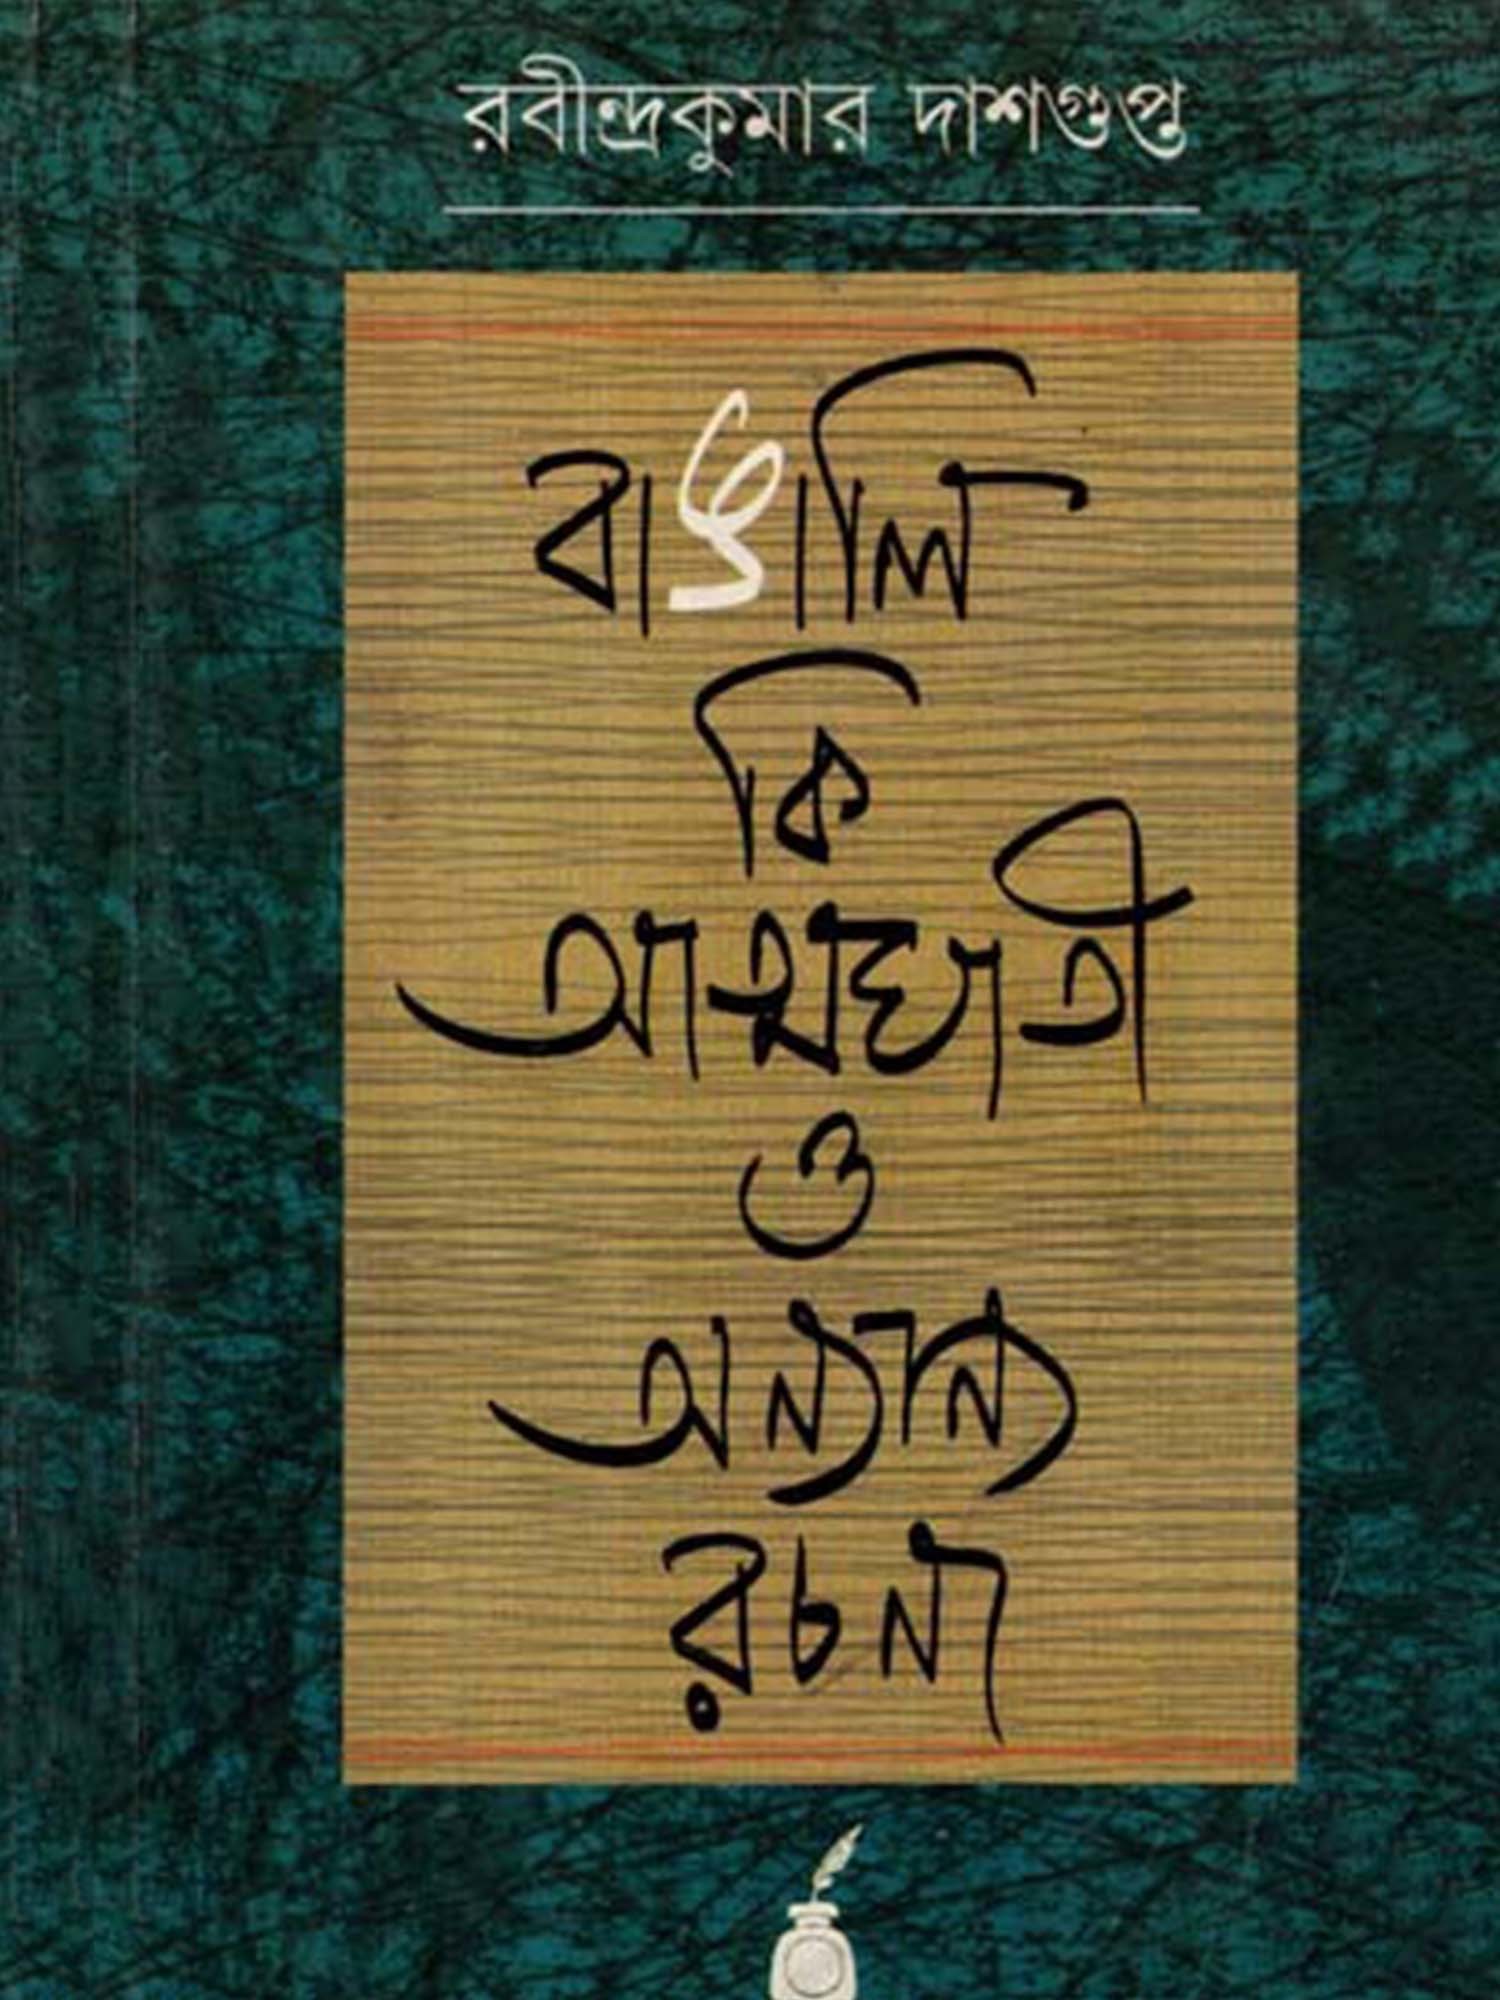 রবীন্দ্রকুমার দাশগুপ্ত
বাঙালি
কি
আত্মঘাতী
ও
অন্যান্য
রচনা